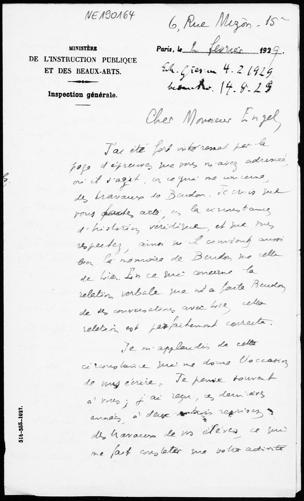 NE190164
6, Rue Mizon - 15e
MINISTÈRE
DE L'INSTRUCTION PUBLIQUE
ET DES BEAUX-ARTS.
Inspection générale.
Paris, le 2 février 1929
4.2.1929
14.8.29
Cher Monsieur Engel,
J'ai été fort intéressé par la
page d'épreuves que vous m'avez adressée
où il s'agit, en ce qui me concerne,
des travaux de Baudon. Je crois que
vous faites acte, en la circonstance,
d'historien véridique, et que vous
respectez, ainsi qu'il convient, aussi
bien la mémoire de Baudon que celle
de Lie. En ce qui concerne la
relation verbale que m'a faite Baudon
de ses conversations avec Lie, cette
relation est parfaitement correcte.
Je m'applaudis de cette
circonstance qui me donne l'occasion
de vous écrire. Je pense souvent
à vous; j'ai reçu, ces dernières
années, à deux reprises,
des travaux de vos élèves, ce qui
me fait constater que votre activité
515-535-1927.